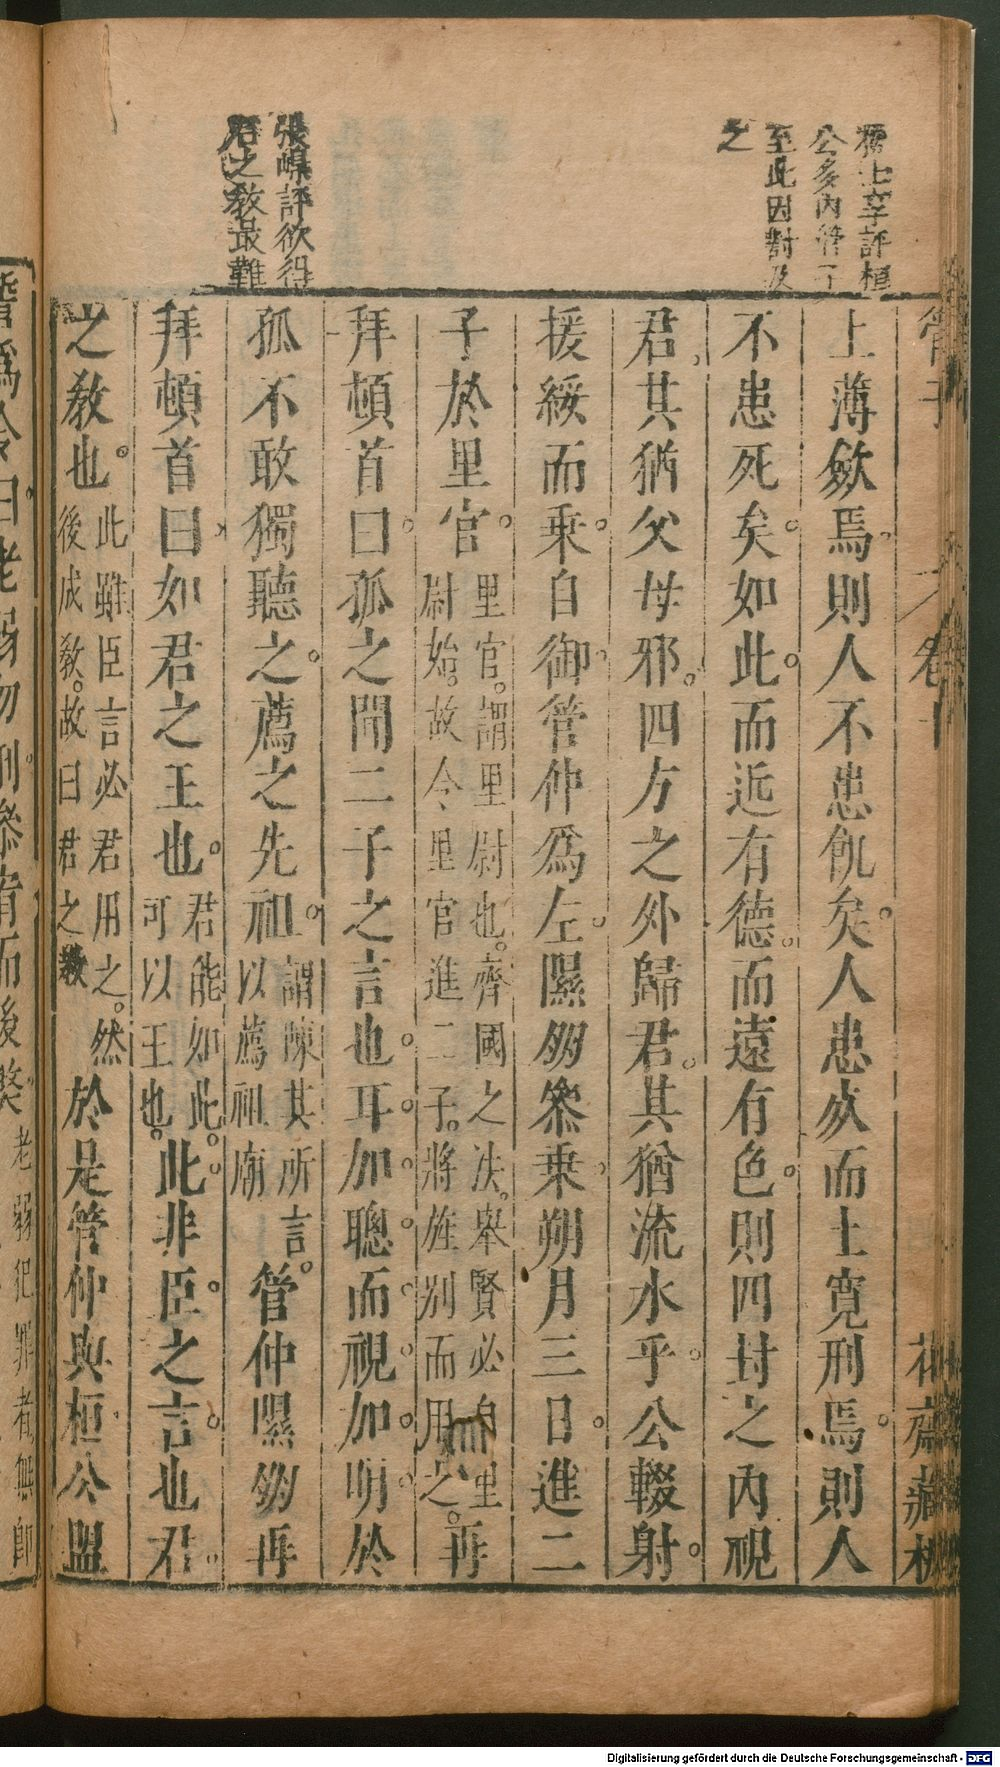 管子
卷十
花齋藏板
公多內管子
至此因對及
之
張嵲評欲得
君之教最難
上薄斂焉則人不患飢矣人患死而上寬刑焉則人
不患死矣如此而近有德而遠有色則四封之內視
君其猶父母邪四方之外歸君其猶流水乎公輟射
援綏而乘自御管仲爲左隰朋參乘朔月三日進二
子於里官里官謂里尉也齊國之法舉賢必自里尉始故令里官進二子將旌別而用之再
拜頓首曰孤之聞二子之言也耳加聰而視加明於
孤不敢獨聽之薦之先祖謂陳其所言以薦祖廟管仲隰朋再
拜頓首曰如君之王也君能如此可以王也此非臣之言也君
之教也此雖臣言必君用之然後成教故曰君之教於是管仲與桓公盟
誓爲令曰老弱勿刑參宥而後弊老弱犯罪者無即
Digitalisierung gefördert durch die Deutsche Forschungsgemeinschaft - DFG